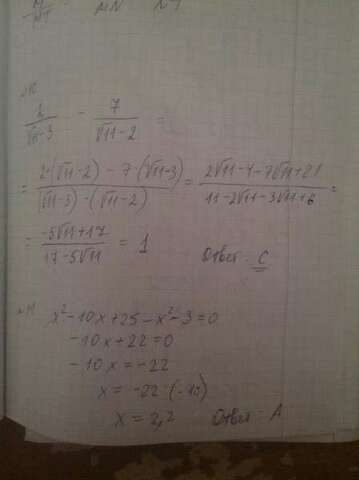 M/NT MN NT
2/(√11-3) - 7/(√11-2) =
= (2·(√11-2) - 7·(√11-3))/((√11-3)·(√11-2)) = (2√11-4-7√11+21)/(11-2√11-3√11+6) =
= (-5√11+17)/(17-5√11) = 1 Ответ: C
x²-10x+25-x²-3=0
-10x+22=0
-10x=-22
x=-22·(-10)
x=2,2 Ответ: A